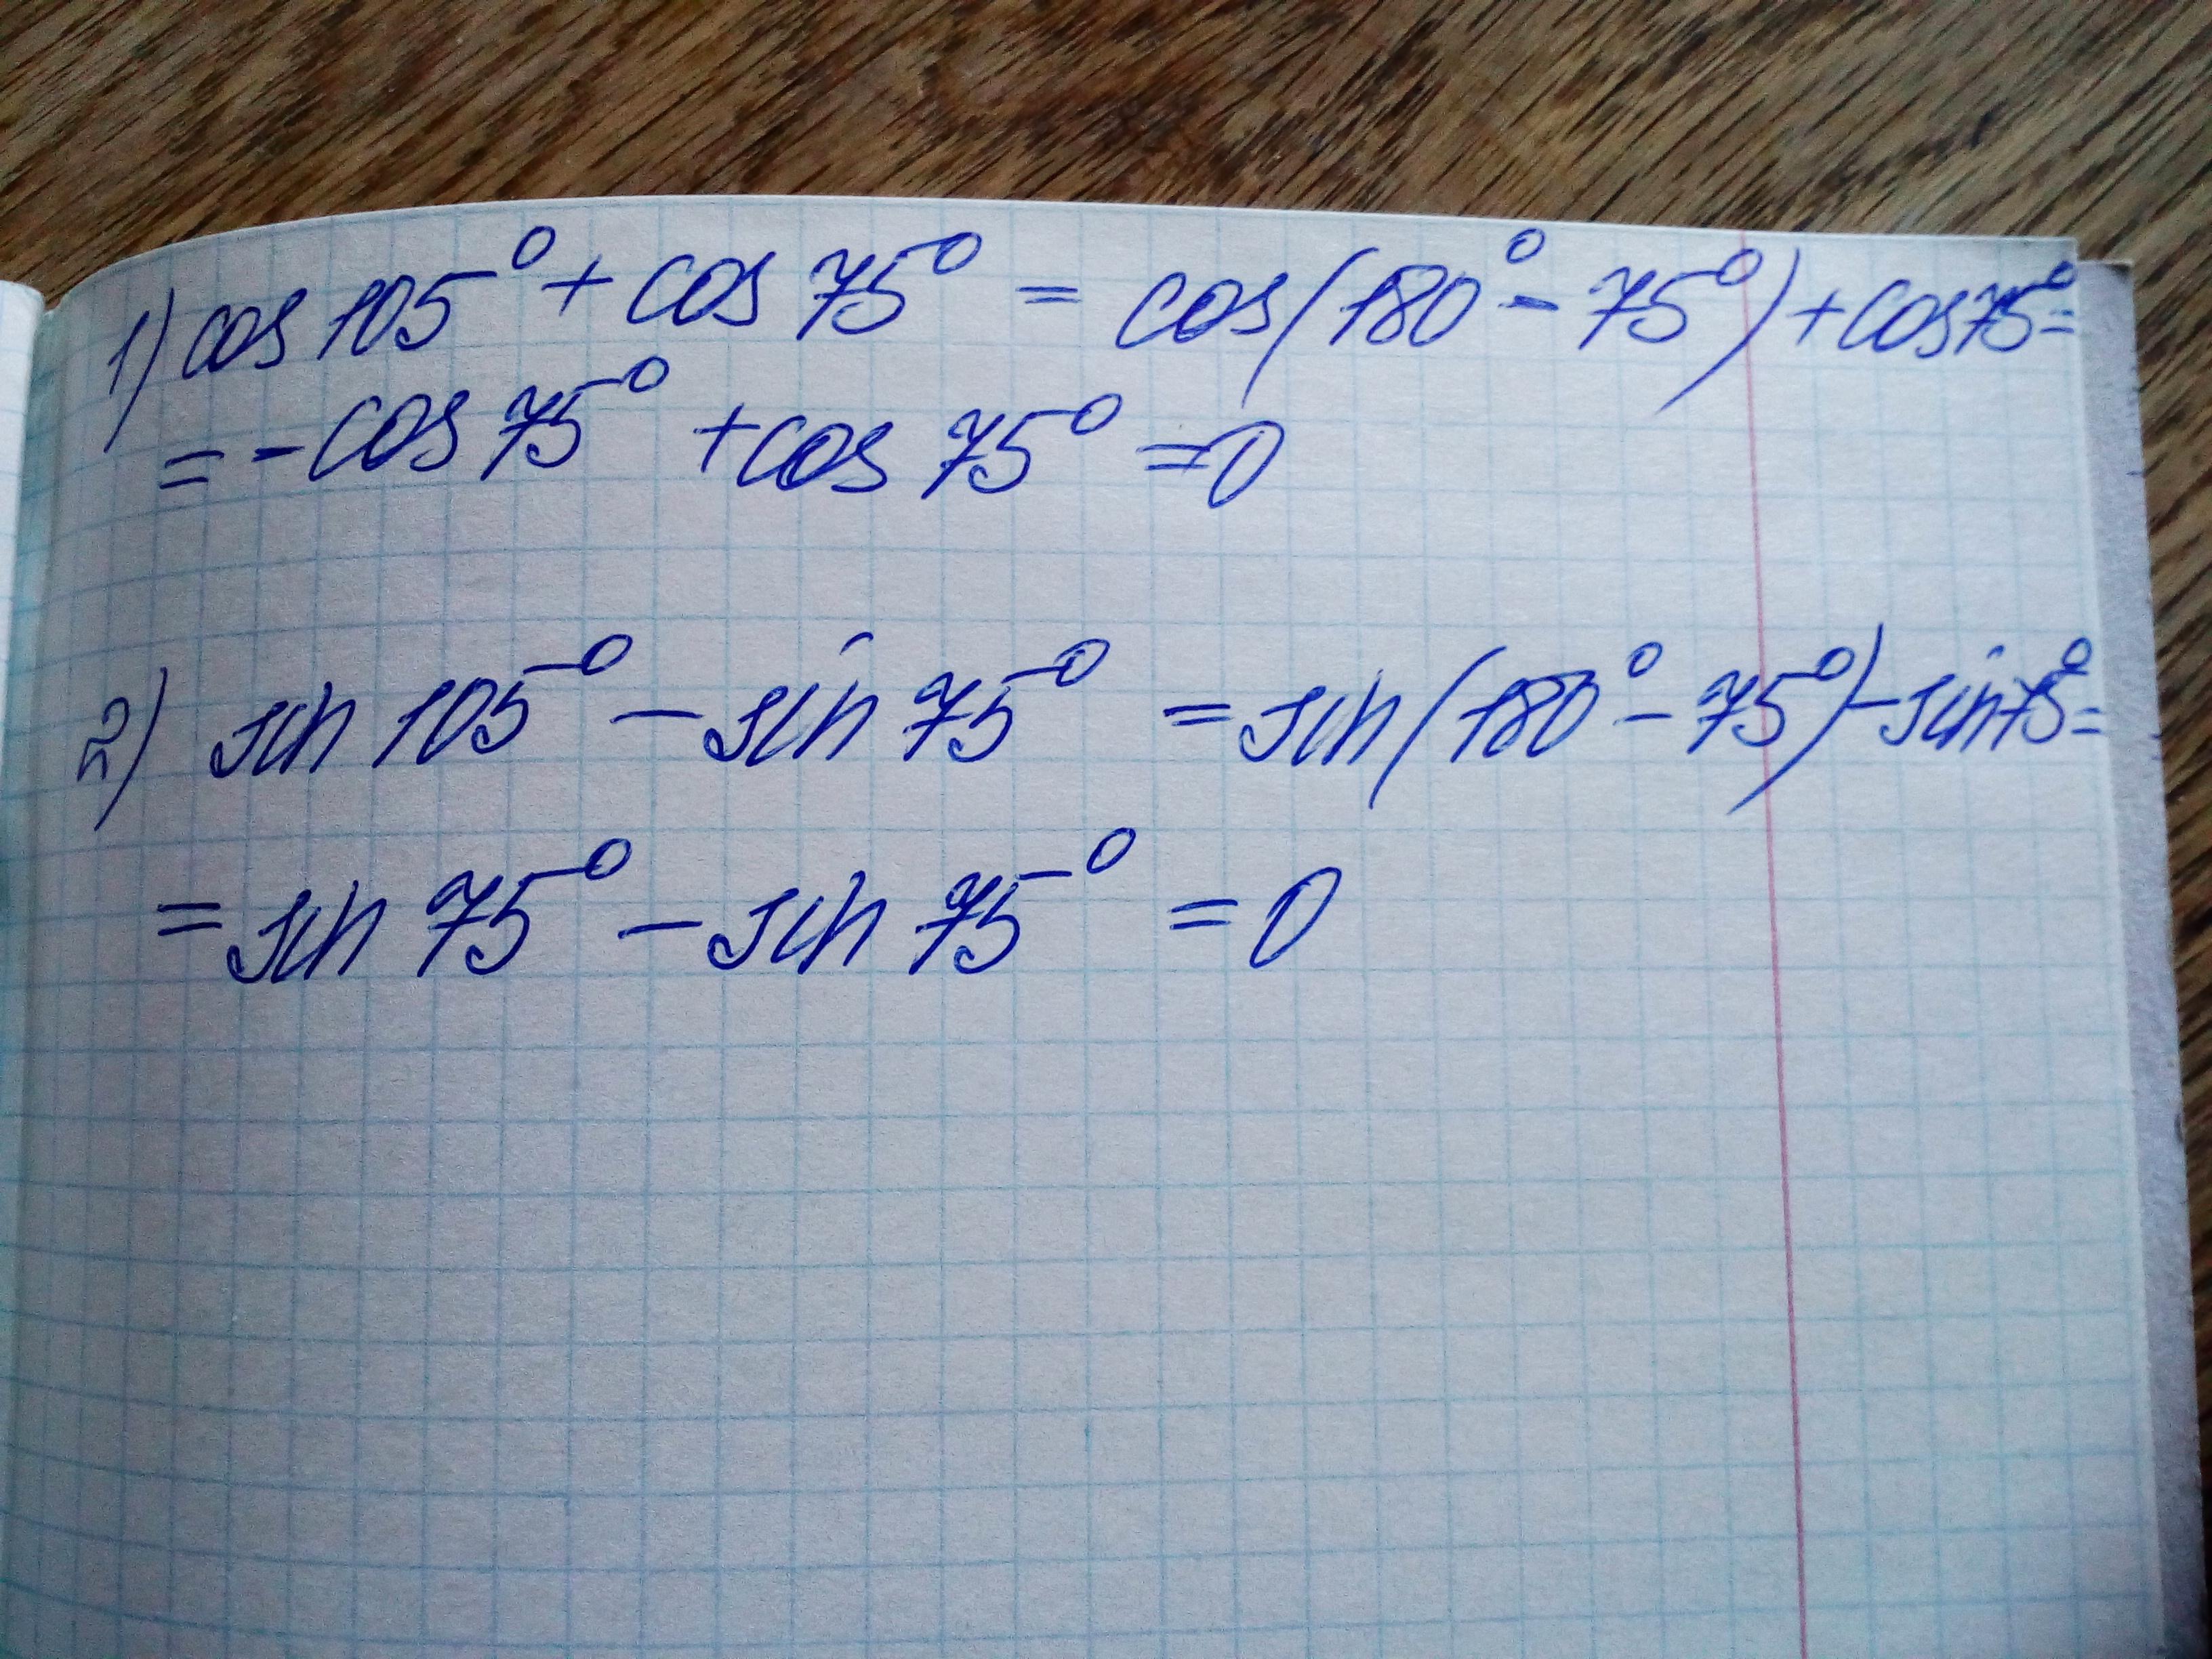 1) cos 105° + cos 75° = cos(180° - 75°) + cos75° =
= - cos 75° + cos 75° = 0
2) sin 105° - sin 75° = sin(180° - 75°) - sin75° =
= sin 75° - sin 75° = 0